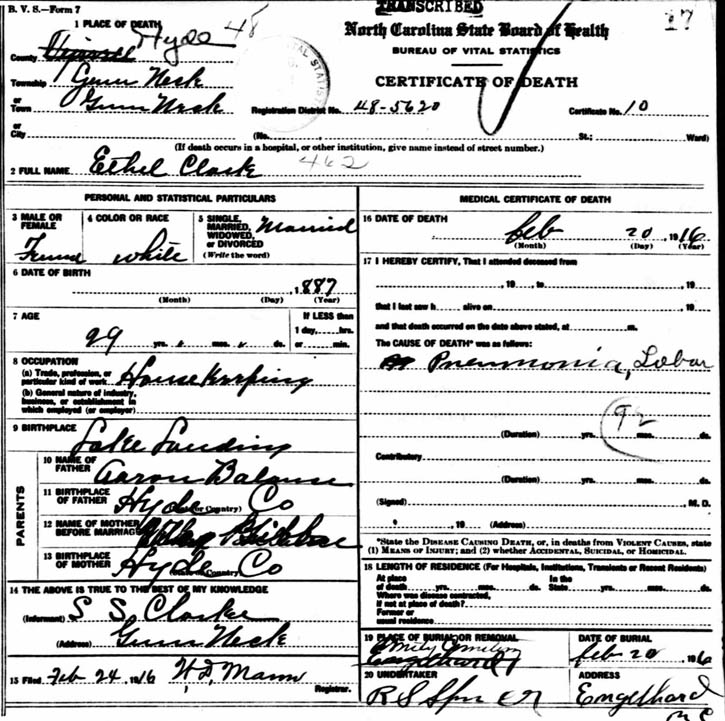 B. V. S.—Form 7
TRANSCRIBED
17
1 PLACE OF DEATH
48
North Carolina State Board of Health
BUREAU OF VITAL STATISTICS
CERTIFICATE OF DEATH
County Hyde
Township Gum Neck
or
Town Gum Neck
Registration District No. 48-5620
Certificate No. 10
or
City
(No. St.; Ward)
(If death occurs in a hospital, or other institution, give name instead of street number.)
462
2 FULL NAME Ethel Clark
PERSONAL AND STATISTICAL PARTICULARS
3 MALE OR FEMALE
4 COLOR OR RACE white
5 SINGLE, MARRIED, WIDOWED, or DIVORCED (Write the word) Married
6 DATE OF BIRTH
, 1887
(Month) (Day) (Year)
7 AGE
29 yrs. mos. ds.
If LESS than 1 day, hrs. or min.
8 OCCUPATION
(a) Trade, profession, or particular kind of work House Keeping
(b) General nature of industry, business, or establishment in which employed (or employer)
9 BIRTHPLACE
Lake Landing
PARENTS
10 NAME OF FATHER Aaron
11 BIRTHPLACE OF FATHER Hyde Co
12 NAME OF MOTHER BEFORE MARRIAGE
13 BIRTHPLACE OF MOTHER Hyde Co
14 THE ABOVE IS TRUE TO THE BEST OF MY KNOWLEDGE
(Informant) S S Clarke
(Address) Gum Neck
15 Filed Feb 24, 1916 W D, Mann
Registrar.
MEDICAL CERTIFICATE OF DEATH
16 DATE OF DEATH
feb 20, 1916
(Month) (Day) (Year)
17 I HEREBY CERTIFY, That I attended deceased from
, 19 , to , 19
that I last saw h alive on , 19
and that death occurred on the date above stated, at m.
The CAUSE OF DEATH* was as follows:
Pneumonia, Lobar
92
(Duration) yrs. mos. ds.
Contributory
(Duration) yrs. mos. ds.
(Signed) , M. D.
, 19 (Address)
*State the DISEASE CAUSING DEATH, or, in deaths from VIOLENT CAUSES, state
(1) MEANS OF INJURY; and (2) whether ACCIDENTAL, SUICIDAL, or HOMICIDAL.
18 LENGTH OF RESIDENCE (For Hospitals, Institutions, Transients or Recent Residents)
At place of death yrs. mos. ds. In the State yrs. mos. ds.
Where was disease contracted, If not at place of death?
Former or usual residence
19 PLACE OF BURIAL OR REMOVAL
Engelhard
DATE OF BURIAL
feb 20, 1916
20 UNDERTAKER
R S Spencer
ADDRESS
Engelhard
N C